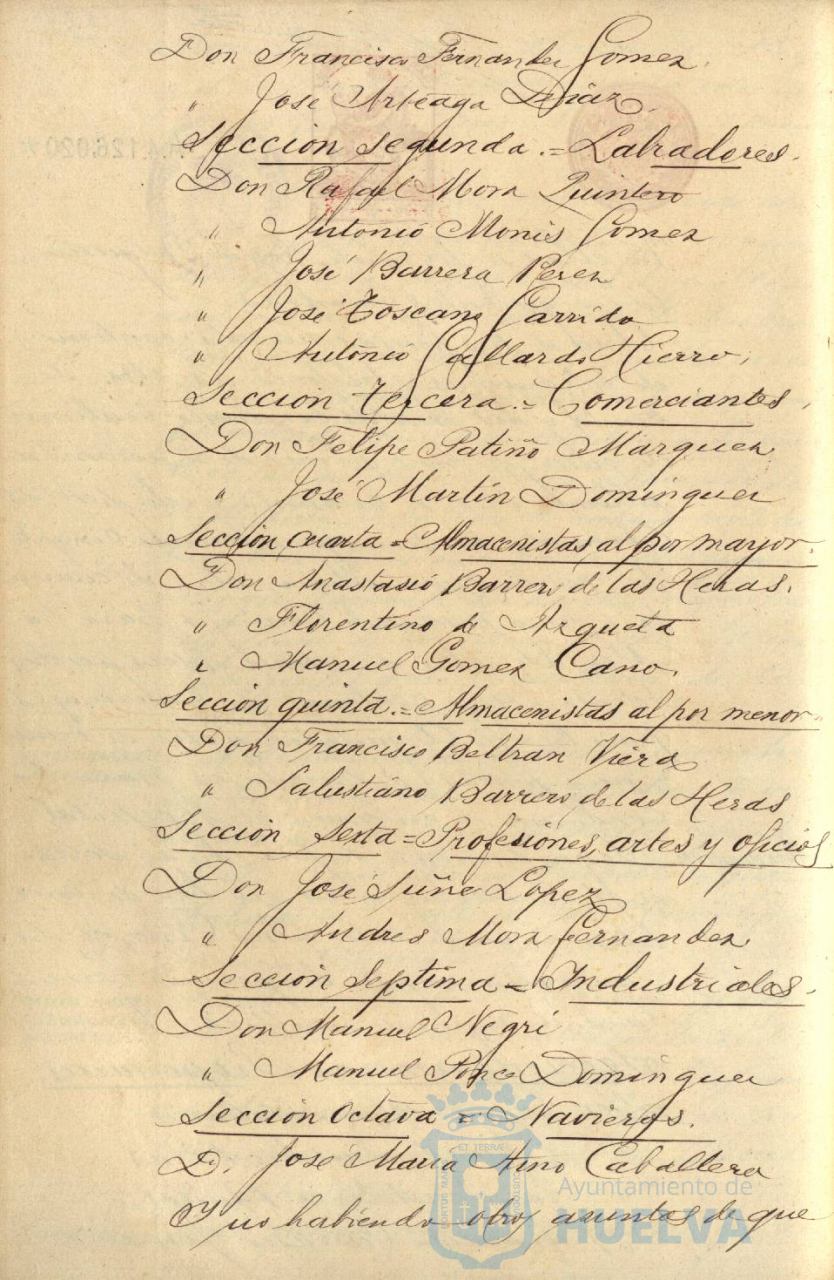 Don Francisco Fernandez Gomez.
" Jose Arteaga Diaz.
Seccion segunda.= Labradores.
Don Rafael Mora Quintero
" Antonio Monis Gomez
" José Barrera Perez
" José Toscano Garrido
" Antonio Gallardo Hierro,
Seccion tercera.= Comerciantes,
Don Felipe Patiño Marquez
" José Martín Dominguez
Sección cuarta = Almacenistas al por mayor.
Don Anastasio Barrero de las Heras.
" Florentino de Azqueta
" Manuel Gomez Cano.
Sección quinta.= Almacenistas al por menor.=
Don Francisco Beltran Viera
" Salustiano Barrero de las Heras
Sección Sexta = Profesiones, artes y oficios
Don José Suñe Lopez
" Andres Mora Fernandez
Sección Septima = Industriales.
Don Manuel Negri
" Manuel Ponce Dominguez
Sección Octava = Navieros.
D. José Maria Amo Caballero
Y no habiendo otros asuntos de que
Ayuntamiento de
HUELVA